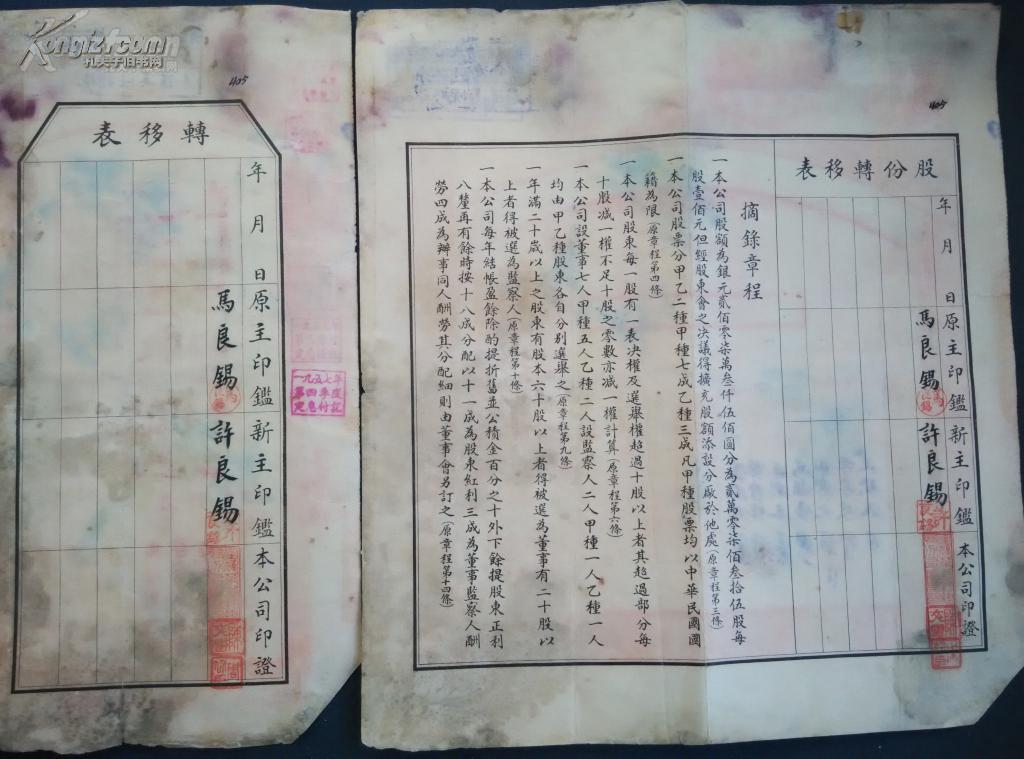 Kongfz.com
孔夫子旧书网
405
轉移表
年 月 日
原主印鑑
新主印鑑
本公司印證
馬良錫
許良錫
一九五七年度
第四季度
定息付訖
405
股份轉移表
年 月 日
原主印鑑
新主印鑑
本公司印證
馬良錫
許良錫
摘錄章程
一本公司股額為銀元貳佰零柒萬叁仟伍佰圓分為貳萬零柒佰叁拾伍股每
股壹佰元但經股東會之决議得擴充股額添設分廠於他處(原章程第三條)
一本公司股票分甲乙二種甲種七成乙種三成凡甲種股票均以中華民國國
籍為限(原章程第四條)
一本公司股東每一股有一表决權及選舉權超過十股以上者其超過部分每
十股减一權不足十股之零數亦减一權計算(原章程第六條)
一本公司設董事七人甲種五人乙種二人設監察人二人甲種一人乙種一人
均由甲乙種股東各自分别選舉之(原章程第九條)
一年滿二十歲以上之股東有股本六十股以上者得被選為董事有二十股以
上者得被選為監察人(原章程第十條)
一本公司每年結帳盈餘除酌提折舊並公積金百分之十外下餘提股東正利
八釐再有餘時按十八成分配以十一成為股東紅利三成為董事監察人酬
勞四成為辦事同人酬勞其分配細則由董事會另訂之(原章程第十四條)